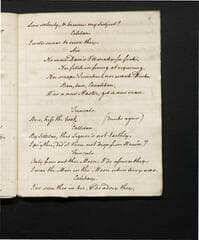 to become my Subject?
Caliban.
I will swear to serve thee.
Air
No more Dams I'll make for fish,
Nor fetch in firing at requiring,
Nor scrape Trencher, nor wash Dish.
Ban, ban, Cacaliban,
Has a new Master, get a new man.
Trinculo.
Here, kiss the book. (Drinks again)
Caliban.
By this Liquor is not Earthly.
did'st thou not drop from Heaven?
Trinculo.
Only from out the Moon, I do assure thee.
I was the Man in the Moon when time was.
Caliban.
I've seen thee in her, & I do adore thee,